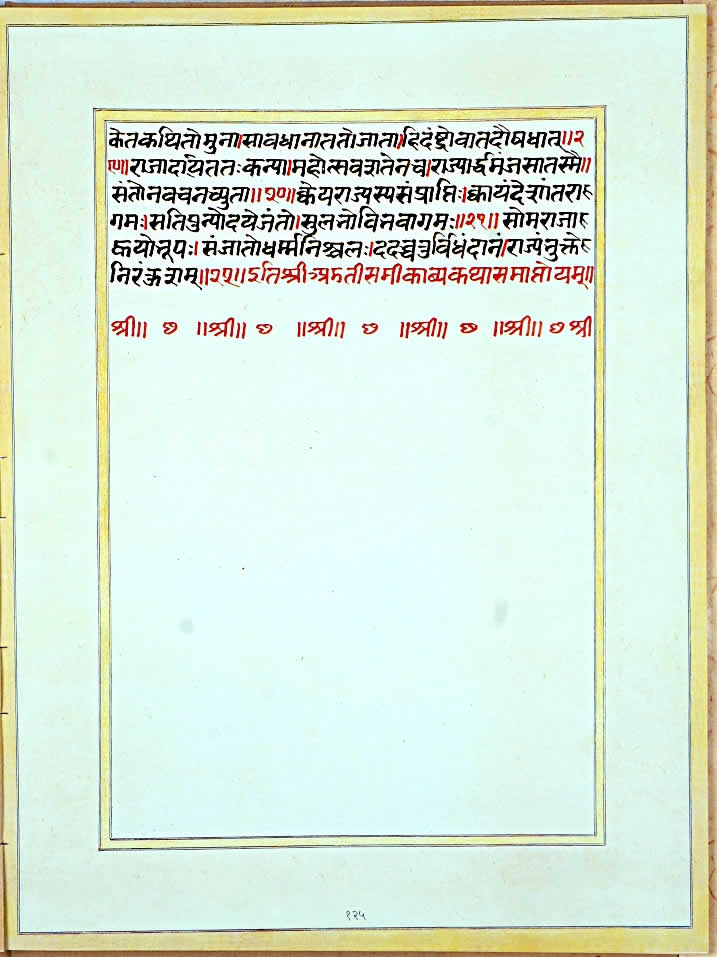 केतकथितोमुना।सावधानाततोजाता।हिदंष्ट्रोवातदौषधात्॥२
१९॥राजादायिततःकन्या।महोत्सवशतेनच।राज्यार्द्धमंजसातस्मै॥
संतोनवचनच्युता॥२०॥केयराज्यस्यसंप्राप्तिः।क्वायंदेशांतरा
गमः।सतिपुन्योदयेजंतो।मुलनोविनवागमः॥२१॥सोमराजा
ह्वयोनृपः।संजातोधर्म्मनिश्चलः।ददच्चतुर्विधंदानं।राज्यंनुक्ते
निरंकुशम्॥२२॥इतिश्रीअष्टतीसमीकाव्यकथासमाप्तोयम्॥
श्री॥ छ ॥श्री॥ छ ॥श्री॥ छ ॥श्री॥ छ ॥श्री॥ छ श्री
१२५